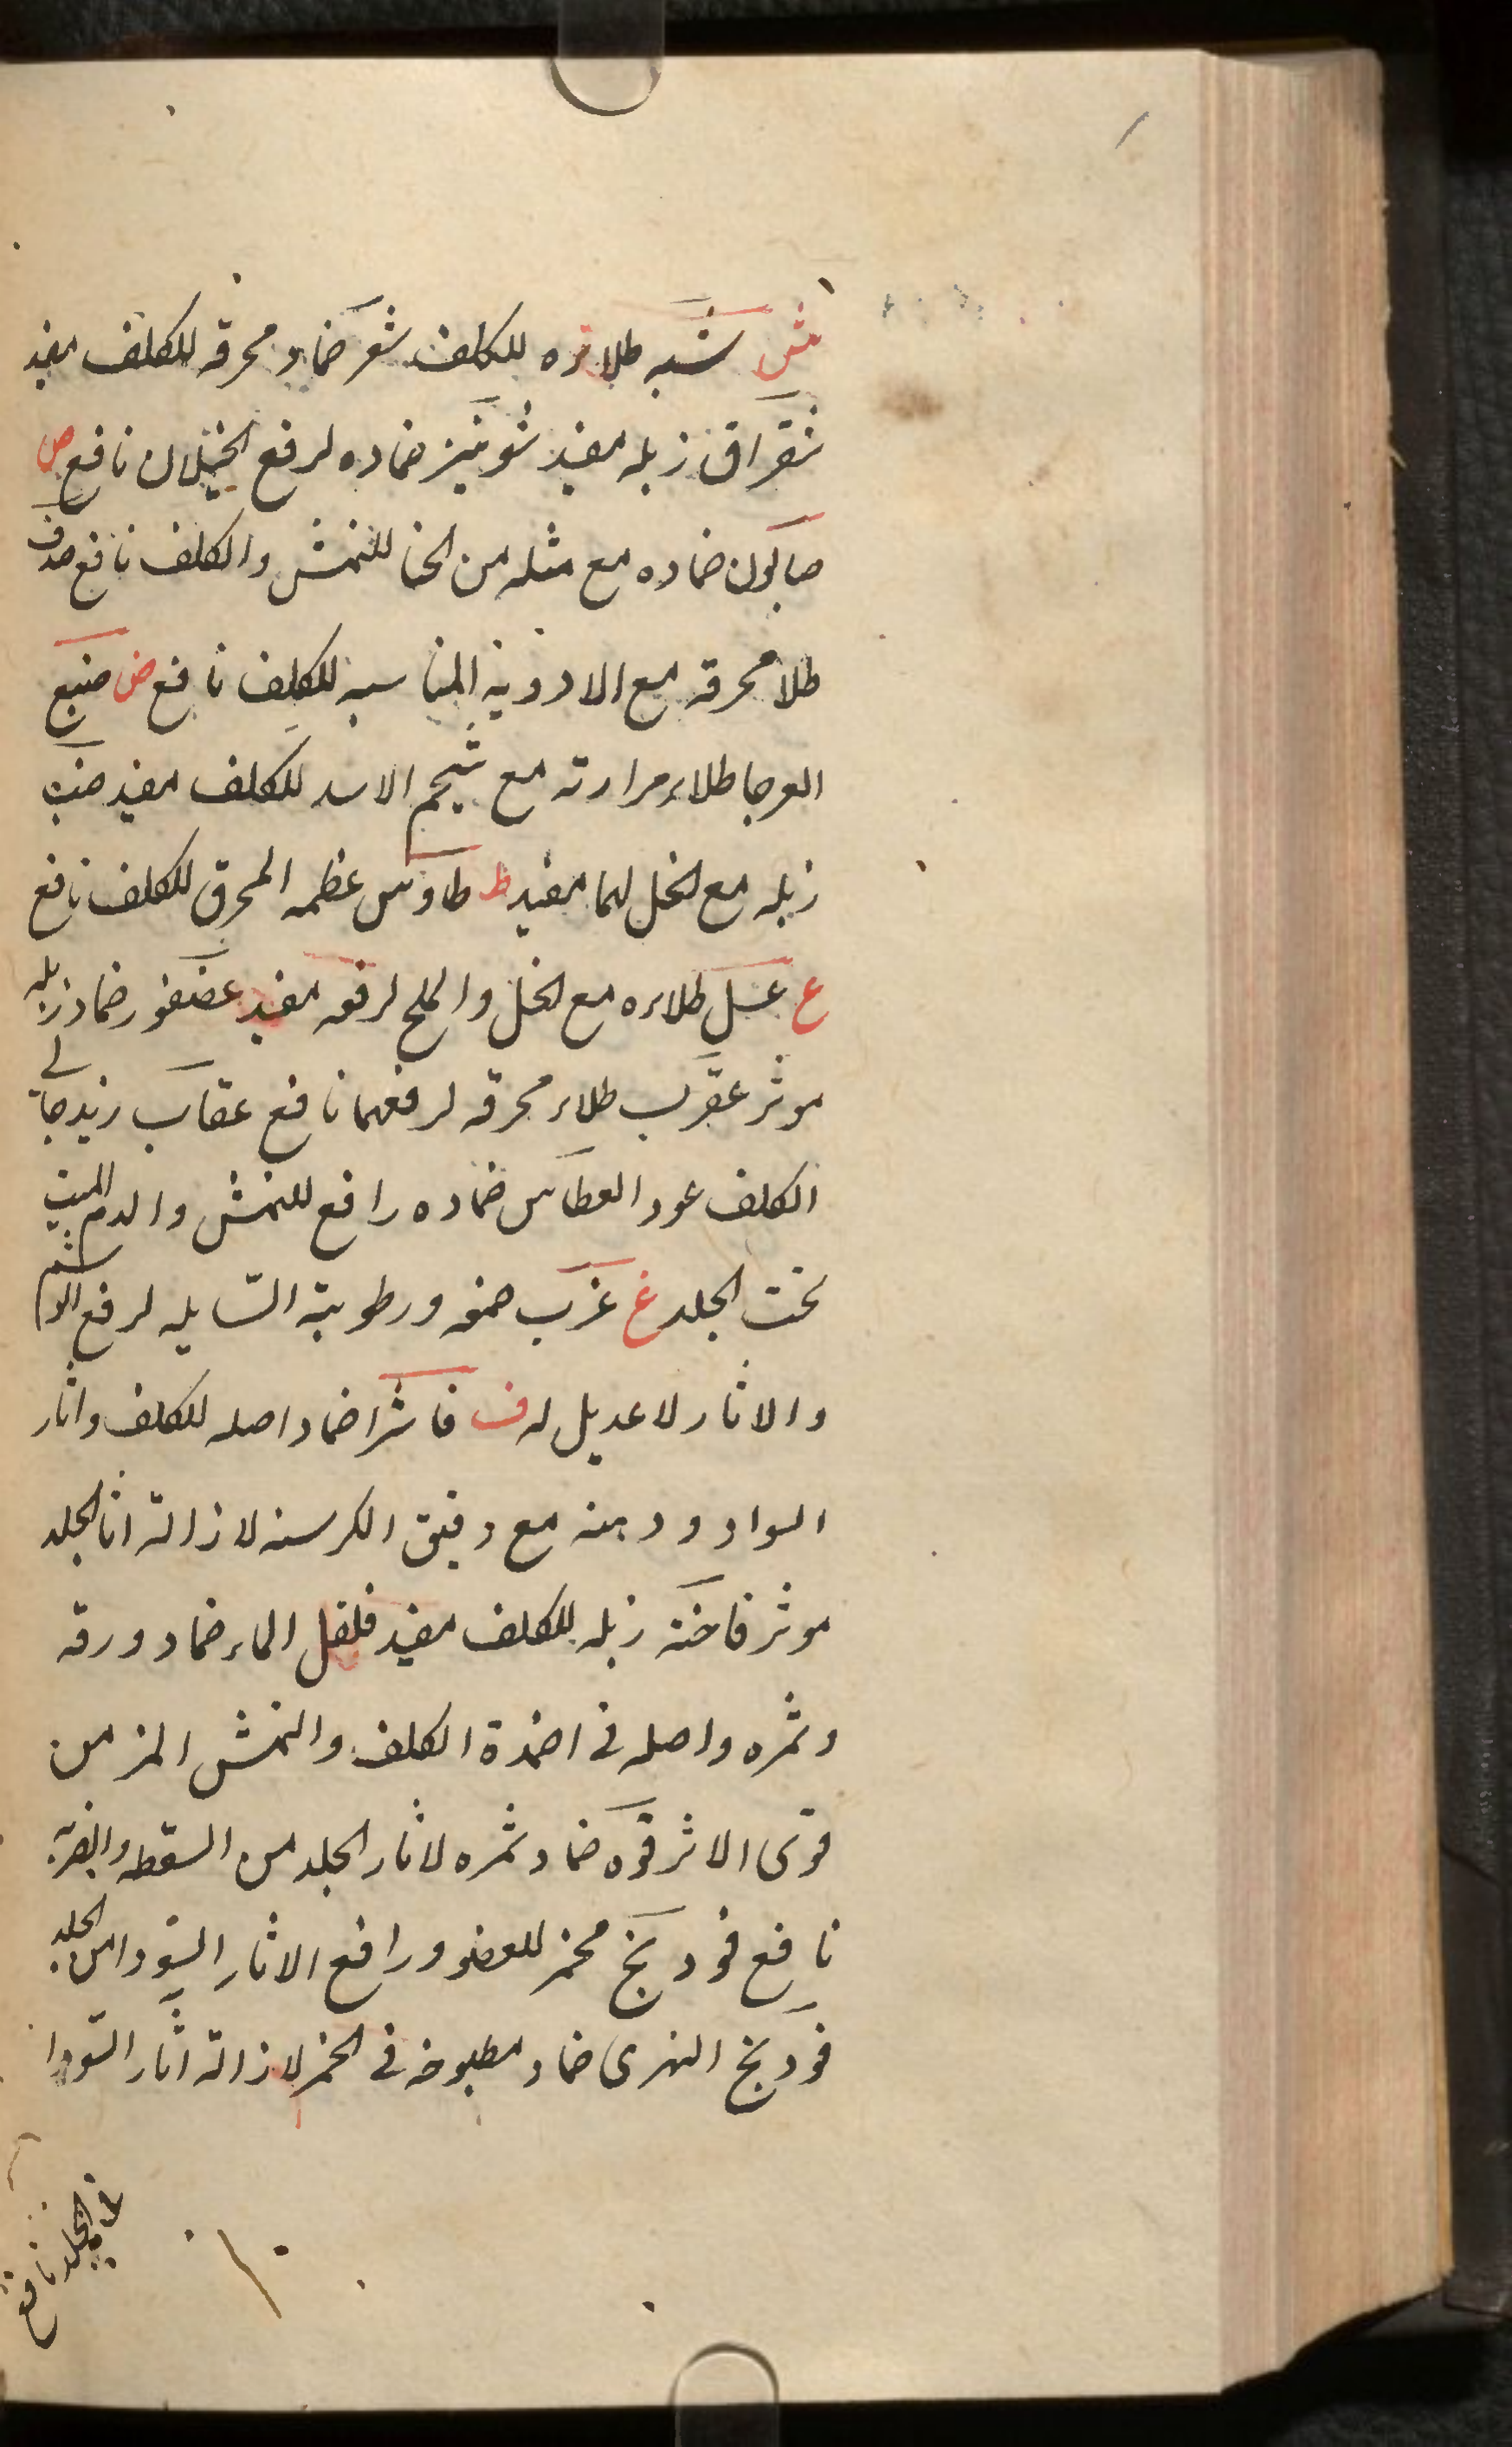 ش شبه طلاءه للكلف شعر ضماد محرقه للكلف مفيد
شقراق زبله مفيد شونيز ضماده لرفع الخيلان نافع ص
صابون ضماده مع مثله من الحنا للنمش والكلف نافع صدف
طلا محرقه مع الادويه المناسبه للكلف نافع ض ضبع
العرجا طلاء مرارته مع شحم الاسد للكلف مفيد ضب
زبله مع الخل لهما مفيد ط طاوس عظمه المحرق للكلف نافع
ع عسل طلاءه مع الخل والملح لرفعه مفيد عصفور ضماد زبله
موثر عقرب طلاء محرقه لرفعهما نافع عقاب زبد جالى
الكلف عود العطاس ضماده رافع للنمش والدم الميت
تحت الجلد غ غرب صمغه ورطوبته السايله لرفع الوشم
والاثار لا عديل له ف فاشرا ضماد اصله للكلف واثار
السواد ودهنه مع دقيق الكرسنه لازالة اثار الجلد
موثر فاخته زبله للكلف مفيد فلفل الماء ضماد ورقه
وثمره واصله فى اضمدة الكلف والنمش المزمن
قوى الاثر قوه ضماد ثمره لاثار الجلد من السقطه والضربه
نافع فودنج محمر للعضو ورافع الاثار السودا من الجلد
فودنج النهرى ضماد مطبوخه فى الخمر لازالة اثار السودا
الجلد نافع